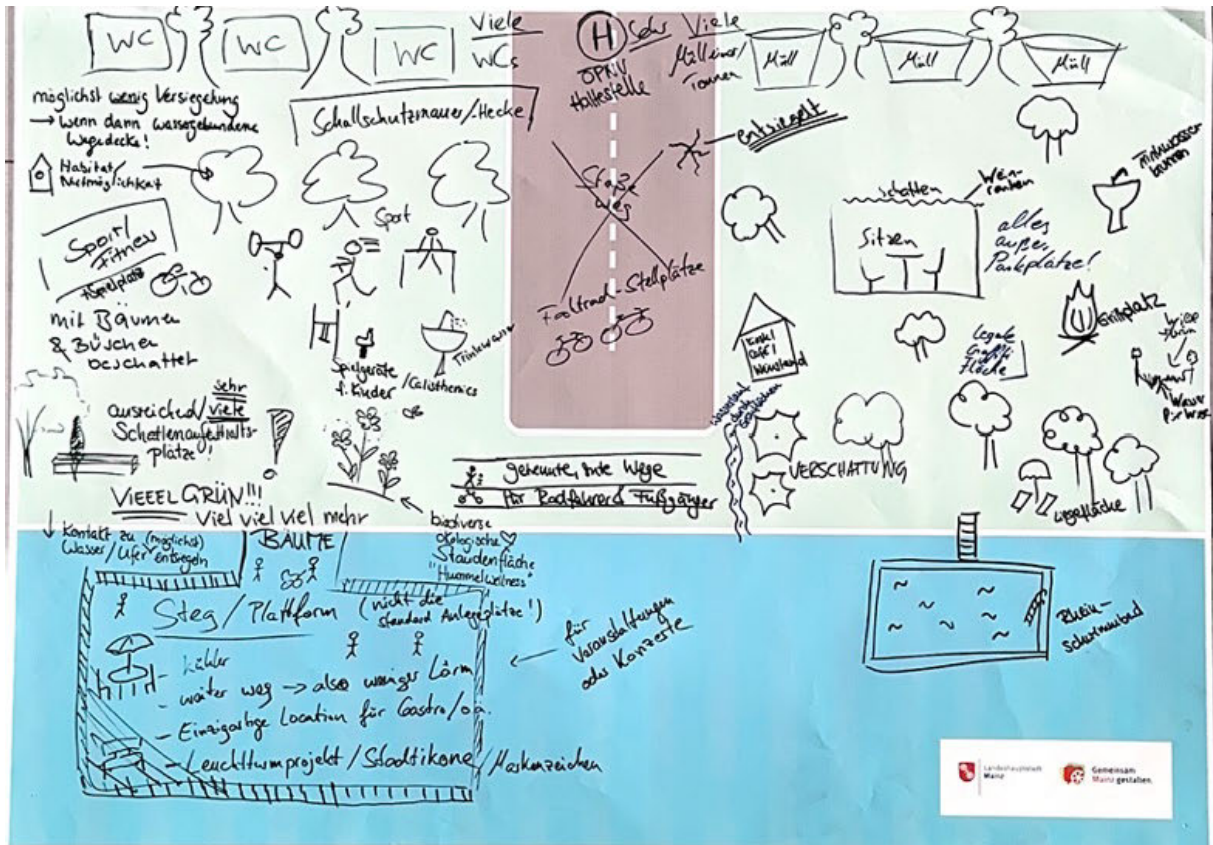 WC
WC
WC
Viele
WCs
H
ÖPNV
Haltestelle
Sehr Viele
Mülleimer/
Tonnen
Müll
Müll
Müll
möglichst wenig Versiegelung
→ wenn dann wassergebundene
Wegedecke!
Schallschutzmauer/-Hecke
entsiegelt
Habitat/
Nistmöglichkeit
Straße
weg
Trinkwasser-
brunnen
Schatten
Wein-
ranken
Sitzen
alles
außer
Parkplätze!
Sport/
Fitness
+Spielplatz
mit Bäumen
& Büschen
beschattet
Sport
Fahrrad-Stellplätze
Trinkwasser
Spielgeräte
f. Kinder
/Calisthenics
Café/
Weinstand
Legale
Graffiti
Fläche
Grillplatz
ausreichend/sehr viele
Schattenaufenthalts-
plätze!
VIEEEL GRÜN!!!
Viel viel viel mehr
BÄUME
getrennte, rote Wege
für Radfahrer & Fußgänger
VERSCHATTUNG
Liegefläche
↓ Kontakt zu (möglichst)
Wasser/Ufer entsiegeln
biodiverse
ökologische ♡
Staudenfläche
"Hummelwellness"
Steg/Plattform (nicht die
standard Anlegeplätze!)
- kühler
- weiter weg → also weniger Lärm
- Einzigartige Location für Gastro/o.ä.
- Leuchtturmprojekt/Stadtikone/Markenzeichen
für
Veranstaltungen
oder Konzerte
Rhein-
schwimmbad
Landeshauptstadt
Mainz
Gemeinsam
Mainz gestalten.